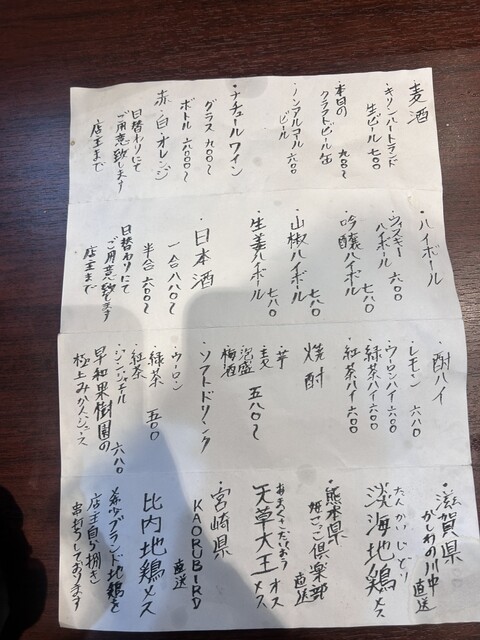 麦酒
・キリンハートランド
生ビール 七〇〇
・本日の
クラフトビール缶 九〇〇〜
・ノンアルコール
ビール 六〇〇
・ナチュールワイン
グラス 九〇〇〜
ボトル 六〇〇〇〜
赤・白・オレンジ
日替わりにて
ご用意致します
店主まで
・ハイボール
・ウィスキー
ハイボール 六〇〇
・吟醸ハイボール 七八〇
・山椒ハイボール 七八〇
・生姜ハイボール 七八〇
・日本酒
一合 八八〇〜
半合 六〇〇〜
日替わりにて
ご用意致します
店主まで
・酎ハイ
・レモン 六八〇
・ウーロンハイ 六〇〇
・緑茶ハイ 六〇〇
・紅茶ハイ 六〇〇
焼酎
・芋
・麦
・泡盛
・梅酒 五八〇〜
・ソフトドリンク
・ウーロン
・緑茶 五〇〇
・紅茶
・ジンジャエール
・早和果樹園の 六八〇
極上みかんジュース
・滋賀県
かしわの川中
直送
たんかいじどり
淡海地鶏 メス
・熊本県
畑ごっこ倶楽部
直送
あまくさだいおう
天草大王 オス メス
・宮崎県
KAORUBIRD
直送
比内地鶏 メス
希少ブランド地鶏を
店主自ら捌き
串打ちしております